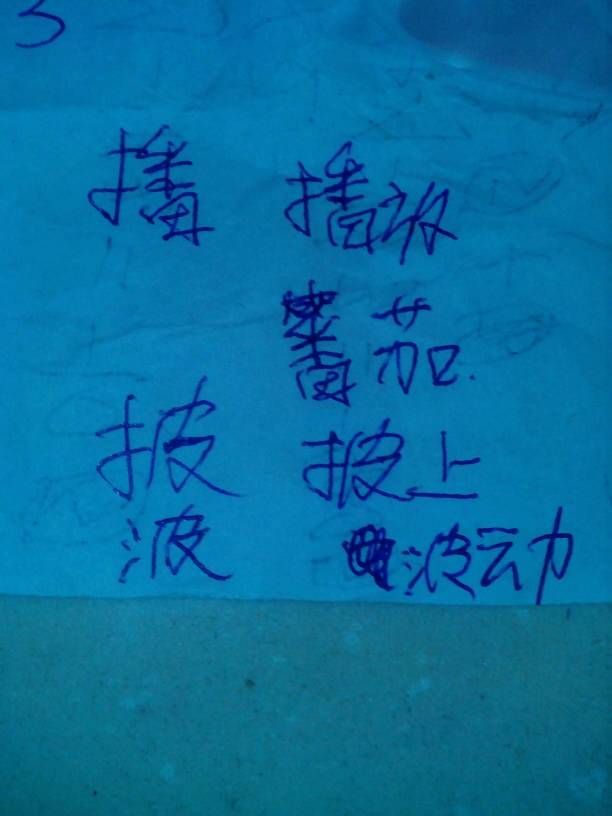 播 播放
番茄
披 披上
波 波动